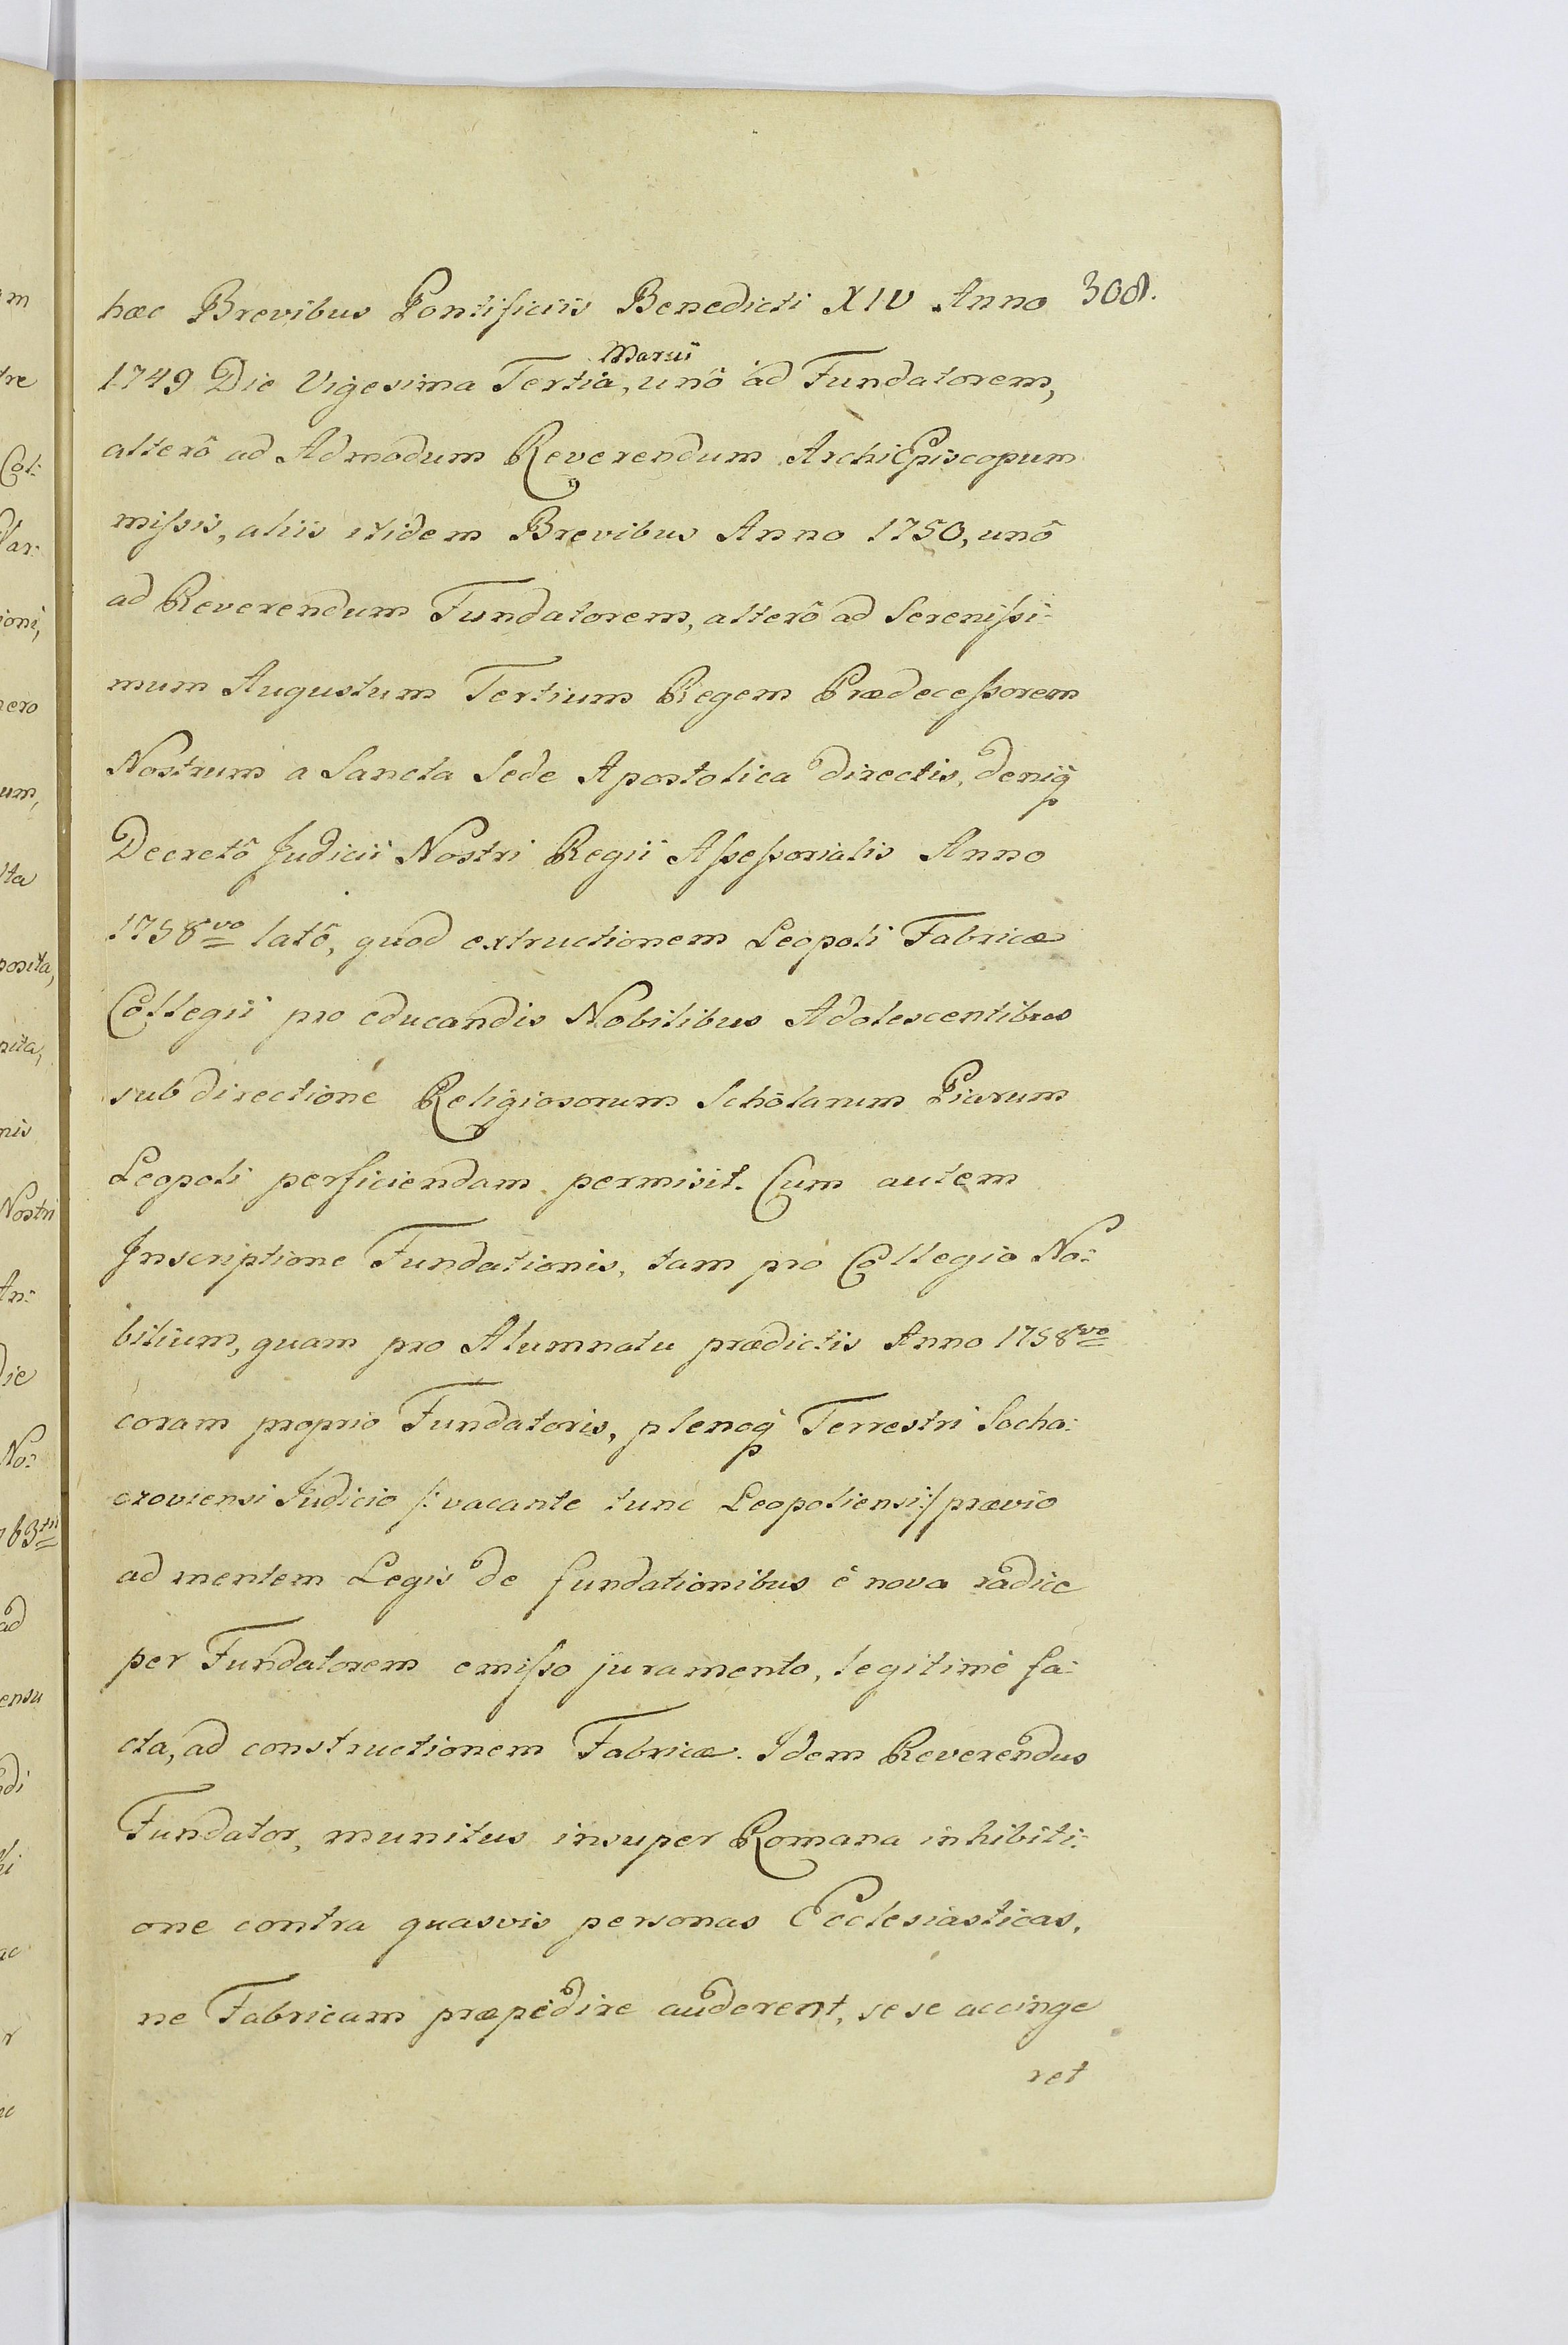 308.
hæc Brevibus Pontificiis Benedicti XIV Anno
Martii
1749 Die Vigesima Tertia, unô ad Fundatorem,
alterô ad Admodum Reverendum ArchiEpiscopum
miſsis, aliis itidem Brevibus Anno 1750, unô
ad Reverendum Fundatorem, alterô ad Sereniſsi-
mum Augustum Tertium Regem Prædeceſsorem
Nostrum a Sancta Sede Apostolica directis, deniq
Decretô Judicii Nostri Regii Aſseſsorialis Anno
1758vo latô, quod extructionem Leopoli Fabricæ
Collegii pro educandis Nobilibus Adolescentibus
sub directione Religiosorum Scholarum Piarum
Leopoli perficiendam permisit. Cum autem
Inscriptione Fundationis, tam pro Collegio No:
bilium, quam pro Alumnatu prædictis Anno 1758vo
coram proprio Fundatoris, plenoq Terrestri Socha:
czoviensi Judicio /: vacante tunc Leopoliensi :/ prævio
ad mentem Legis de fundationibus è nova radice
per Fundatorem emiſso juramento, legitimè fa:
cta, ad constructionem Fabricæ. Idem Reverendus
Fundator, munitus insuper Romana inhibiti:
one contra quasvis personas Ecclesiasticas,
ne Fabricam præpedire auderent, sese accinge
ret